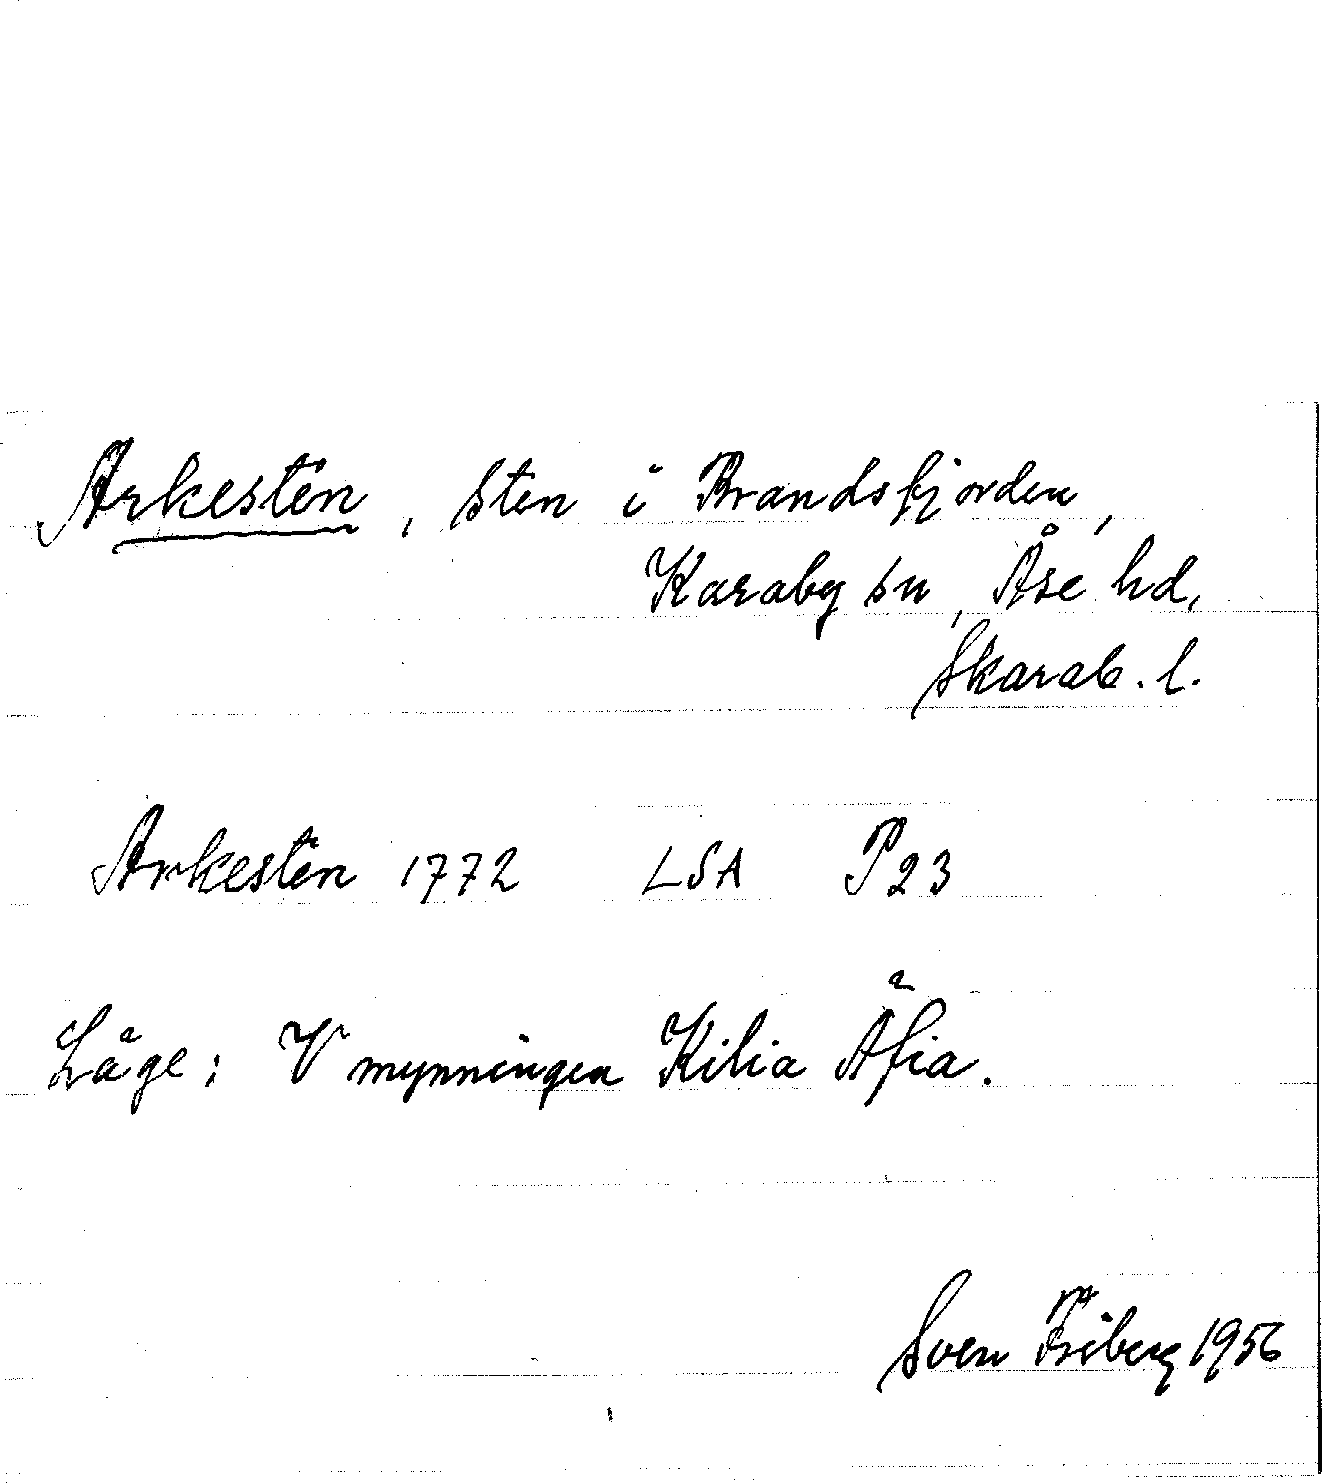 Arkesten, sten i Brandsfjorden,
Karaby sn, Åse hd,
Skarab. l.
Arkesten 1772 LSA P23
Läge: V mynningen Kilia Äfia.
Sven Friberg 1956